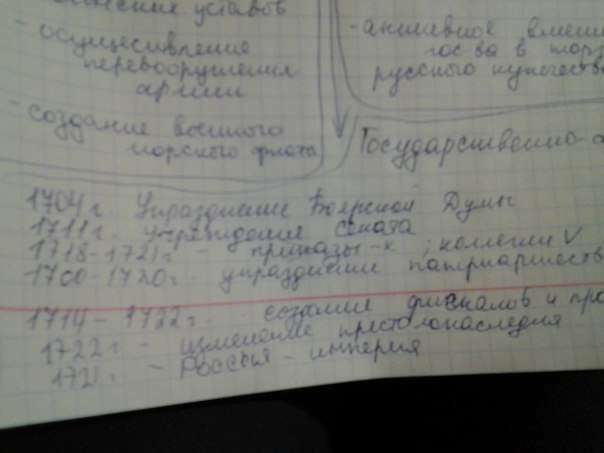 уставов
- осуществление
перевооружения
армии
- создание военного
морского флота
- активное вмеш
гос-ва в торг
русского купечества
Государственно-а
1704 г. Упразднение Боярской Думы
1711 г. учреждение сената
1718-1721 г. - приказы -х ; коллегии V
1700-1720 г. - упразднение патриаршеств
1714-1722 г. - создание фискалов и про
1722 г. - изменение престолонаследия
1721 г. - Россия - империя